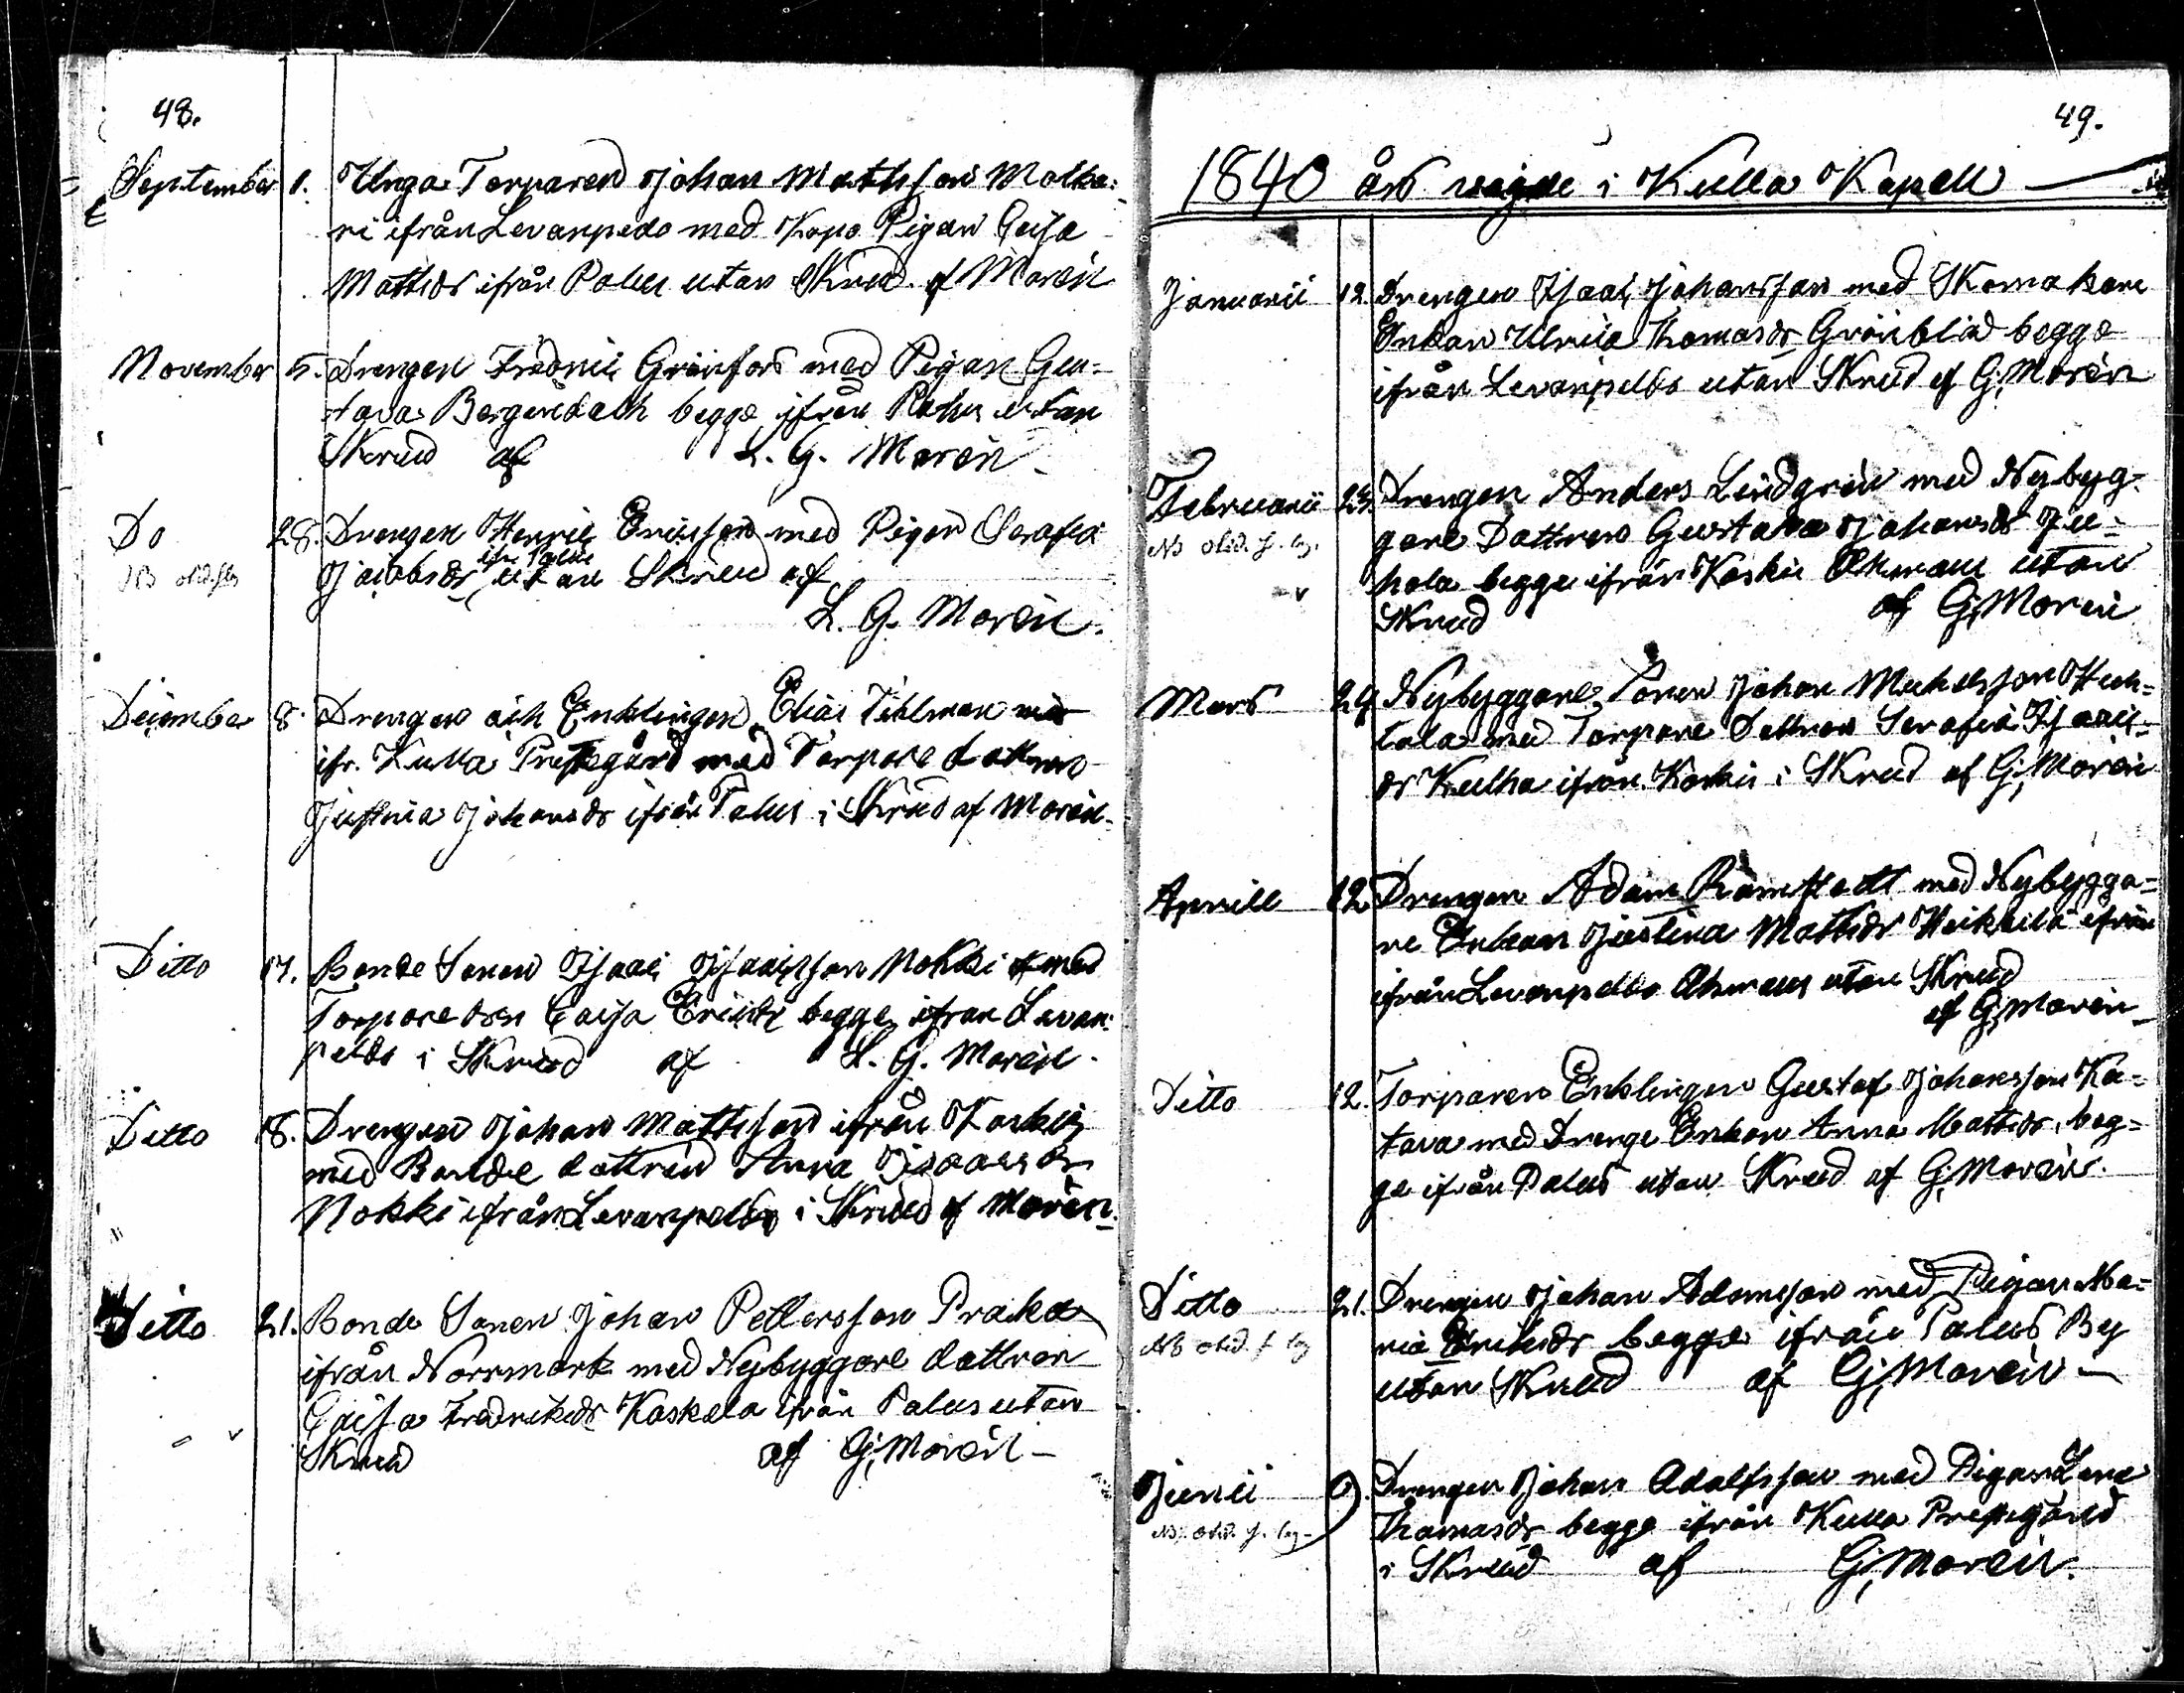 48.
September 1. Unga Torparen Johan Mathsson Molka:
ri ifrån Levanpedo med Kopo Pigan Caisa
Mattsdr ifrån Palus utan Skrud af Morén
November 5. Drengen Fredric Grönfors med Pigan Gus=
tava Bergendahl begge ifrån Palus utan
Skrud af L. G. Morén
Do 28. Drengen Henric Ericsson med Pigan Serafia
NB
ifr. Palus
Jacobsdr utan Skrud af
L. G. Morén.
December 8. Drengen och Enklingen Elias Tihlman
ifr. Kulla Prestegård med Torpare dottren
Justina Johansdr ifrån Palus i Skrud af Morén.
Ditto 17. Bonde Sonen Isaac Isaacsson Nokki med
Torpare dren Caisa Ericsdr begge ifrån Levan:
pelds i Skrud af L. G. Morén.
Ditto 18. Drengen Johan Mattsson ifrån Koskis
med Bonde dottren Anna Isaacsdr
Nokki ifrån Levanpelds i Skrud af Morén.
Ditto 21. Bonde Sonen Johan Pettersson Praka
ifrån Norrmark med Nybyggare dottren
Caisa Fredriksdr Koskela ifrån Palus utan
Skrud af G, Morén
49.
1840 års vigde i Kulla Kapell
Januarii 12. Drengen Isaac Johansson med Skomakare
Enkan Ulrica Thomasdr Grönblad begge
ifrån Levanpelds utan Skrud af G, Morén
Februarii 23. Drengen Anders Lindgrén med Nybyg-
NB
gare Dottren Gustava Johansdr Ju=
hola begge ifrån Koskis Åhmans utan
Skrud af G, Morén
Mars 29 Nybyggare Sonen Johan Michelsson Huh=
tala med Torpare Dottren Serafia Isaacs=
dr Kulha ifrån Koskis i Skrud af G, Morén
Aprill 12 Drengen Adam Ramstedt med Nybygga=
re Enkan Justina Mattsdr Heikkilä ifrån
ifrån Levanpelds Åhmans utan Skrud
af G, Morén
Ditto 12. Torparen Enklingen Gustaf Johansson Ka=
tava med Drenge Enkan Anna Mattsdr, beg=
ge ifrån Palus utan Skrud af G, Morén.
Ditto 21. Drengen Johan Adamsson med Pigan Ma=
NB
ria Eriksdr begge ifrån Palus By
utan Skrud af G, Morén
Junii 9. Drengen Johan Adolfsson med Pigan Lena
NB
Thomasdr begge ifrån Kulla Prestegård
i Skrud af G, Morén.